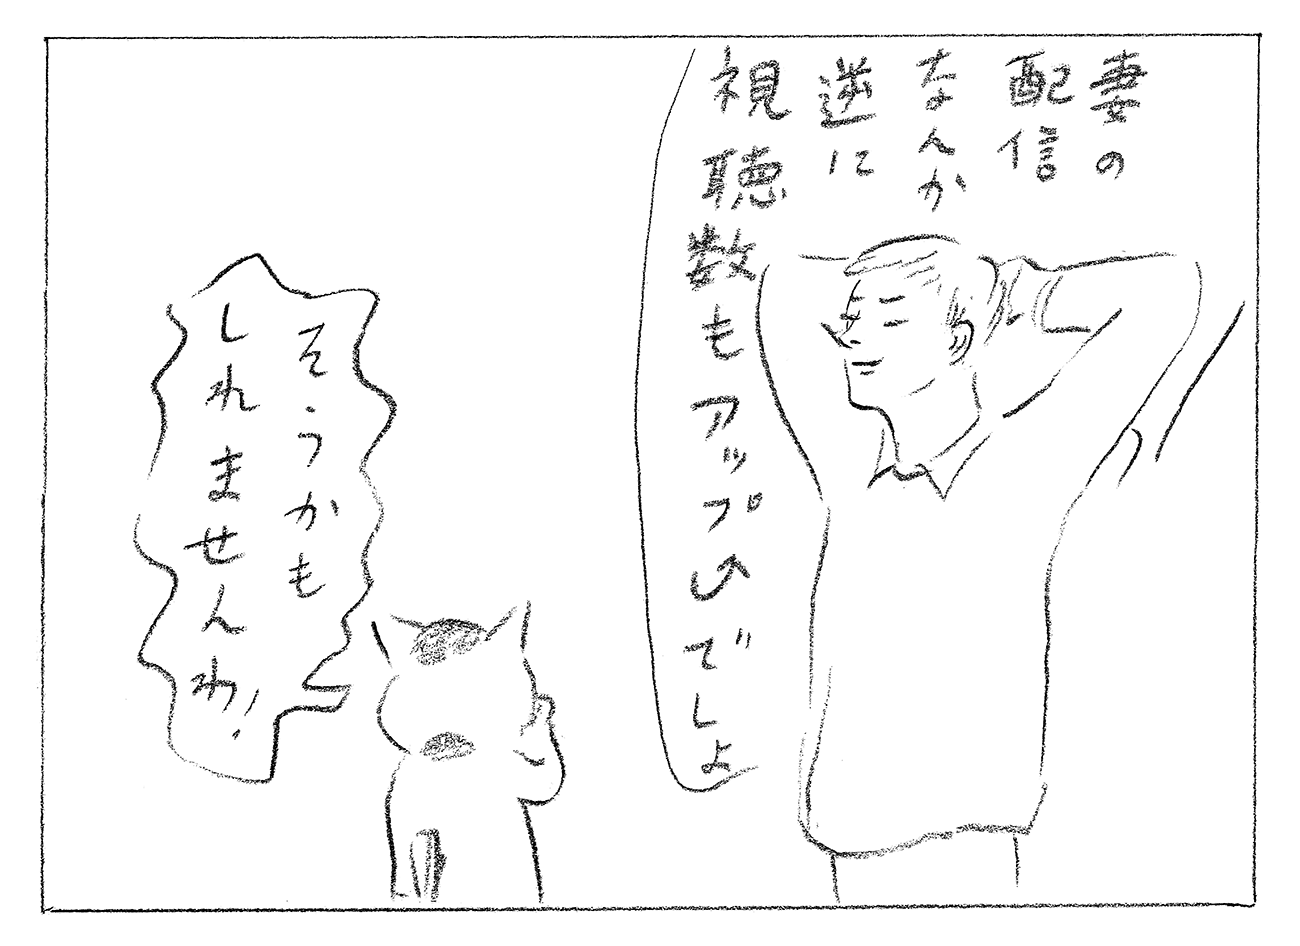 妻の
配信
なんか
逆に
視聴数もアップしちゃうでしょ
そうかも
しれませんわ!